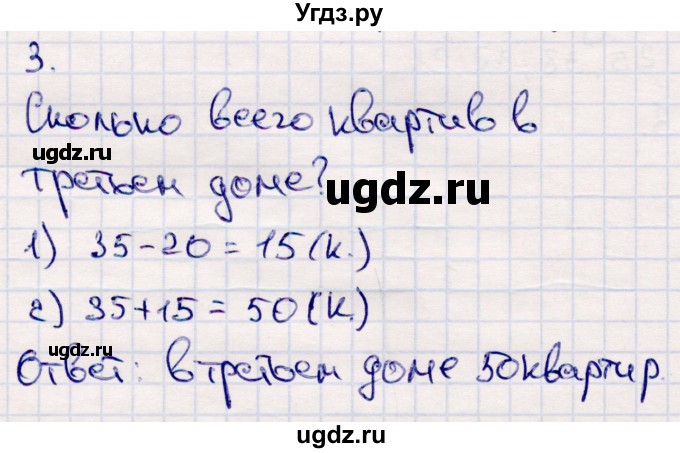 Угдз.ру
3.
Сколько всего квартив в
ugdz.ru
третьем доме?
ugdz.ru
1) 35-20=15(к.)
2) 35+15=50(к.)
ugdz.ru
Ответ: в третьем доме 50 квартир.
ugdz.ru